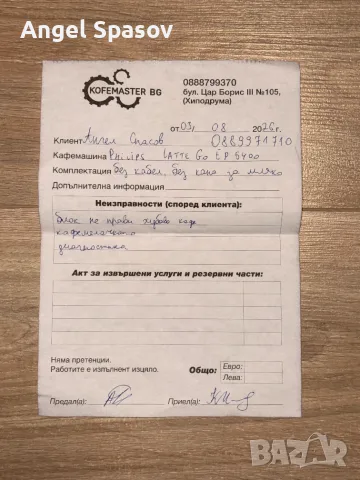 Angel Spasov
KOFEMASTER BG
0888799370
бул. Цар Борис III №105,
(Хиподрума)
от 03/ 08 2026г.
Клиент Ангел Спасов 0889971710
Кафемашина Philips LATTE Go EP 5400
Комплектация без кабел, без кана за мляко
Допълнителна информация
Неизправности (според клиента):
блок не прави хубаво кафе
диагностика
Акт за извършени услуги и резервни части:
Няма претенции.
Работите е изпълнент изцяло.
Общо:
Евро:
Лева:
Предал(а):
Приел(а):
BAZAR
bg